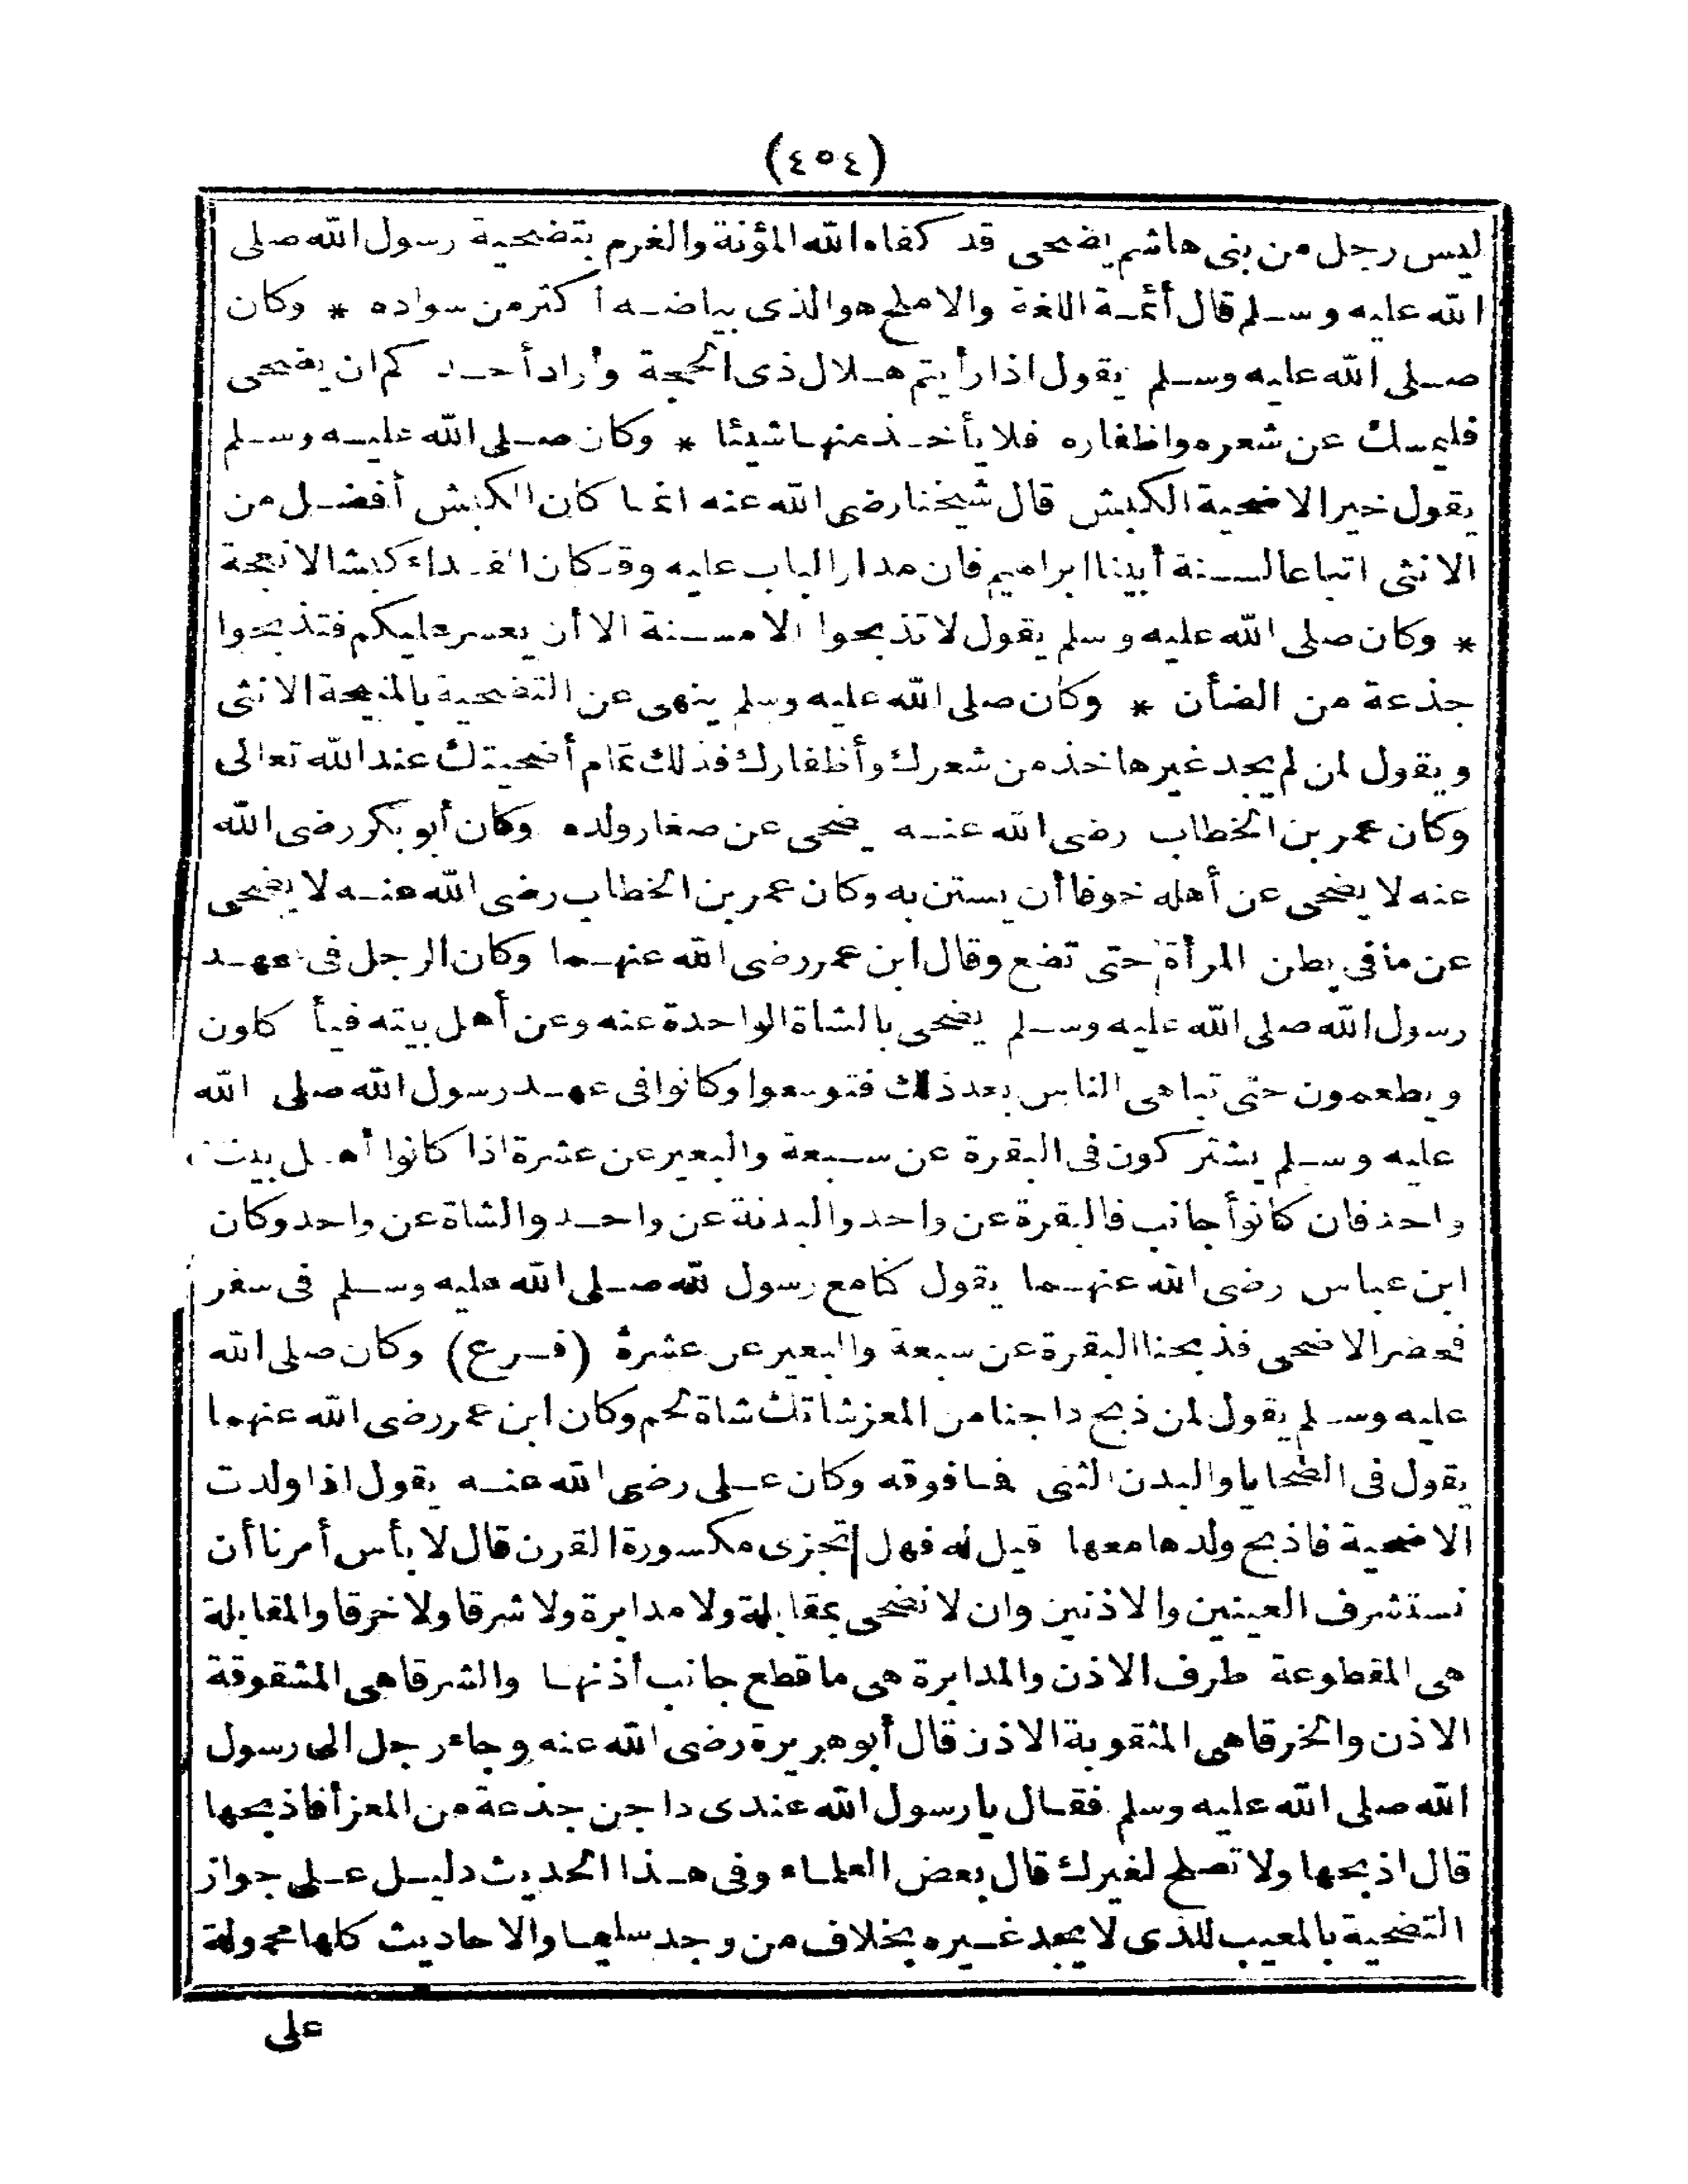 (٤٥٤)
ليس رجل من بنى هاشم يضحى قد كفاه الله المؤنة والغرم بتضحية رسول الله صلى
الله عليه وسلم قال أئمة اللغة والاملح هو الذى بياضه أكثر من سواده * وكان
صلى الله عليه وسلم يقول اذا رأيتم هلال ذى الحجة وأراد أحدكم ان يضحى
فليمسك عن شعره واظفاره فلا يأخذ منها شيئا * وكان صلى الله عليه وسلم
يقول خير الاضحية الكبش قال شيخنا رضى الله عنه انما كان الكبش أفضل من
الانثى اتباعا لسنة أبينا ابراهيم فان مدار الباب عليه وقد كان الفداء كبشا لا نعجة
* وكان صلى الله عليه وسلم يقول لا تذبحوا الا مسنة الا أن يعسر عليكم فتذبحوا
جذعة من الضأن * وكان صلى الله عليه وسلم ينهى عن التضحية بالمنيحة الانثى
ويقول لمن لم يجد غيرها خذ من شعرك وأظفارك فذلك تمام أضحيتك عند الله تعالى
وكان عمر بن الخطاب رضى الله عنه يضحى عن صغار ولده وكان أبو بكر رضى الله
عنه لا يضحى عن أهله خوفا أن يستن به وكان عمر بن الخطاب رضى الله عنه لا يضحى
عن ما فى بطن المرأة حتى تضع وقال ابن عمر رضى الله عنهما وكان الرجل فى عهد
رسول الله صلى الله عليه وسلم يضحى بالشاة الواحدة عنه وعن أهل بيته فيأ كلون
ويطعمون حتى تباهى الناس بعد ذلك فتوسعوا وكانوا فى عهد رسول الله صلى الله
عليه وسلم يشتركون فى البقرة عن سبعة والبعير عن عشرة اذا كانوا أهل بيت
واحد فان كانوا أجانب فالبقرة عن واحد والبدنة عن واحد والشاة عن واحد وكان
ابن عباس رضى الله عنهما يقول كنا مع رسول الله صلى الله عليه وسلم فى سفر
فحضر الاضحى فذبحنا البقرة عن سبعة والبعير عن عشرة (فرع) وكان صلى الله
عليه وسلم يقول لمن ذبح داجنا من المعز شاتك شاة لحم وكان ابن عمر رضى الله عنهما
يقول فى الضحايا والبدن الثنى فما فوقه وكان على رضى الله عنه يقول اذا ولدت
الاضحية فاذبح ولدها معها قيل له فهل تجزى مكسورة القرن قال لا بأس أمرنا أن
نستشرف العينين والاذنين وان لا نضحى بمقابلة ولا مدابرة ولا شرقا ولا خرقا والمقابلة
هى المقطوعة طرف الاذن والمدابرة هى ما قطع جانب أذنها والشرقا هى المشقوقة
الاذن والخرقا هى المثقوبة الاذن قال أبو هريرة رضى الله عنه وجاء رجل الى رسول
الله صلى الله عليه وسلم فقال يا رسول الله عندى داجن جذعة من المعز أفاذبحها
قال اذبحها ولا تصلح لغيرك قال بعض العلماء وفى هذا الحديث دليل على جواز
التضحية بالمعيب للذى لا يجد غيره بخلاف من وجد سليما والاحاديث كلها محمولة
على